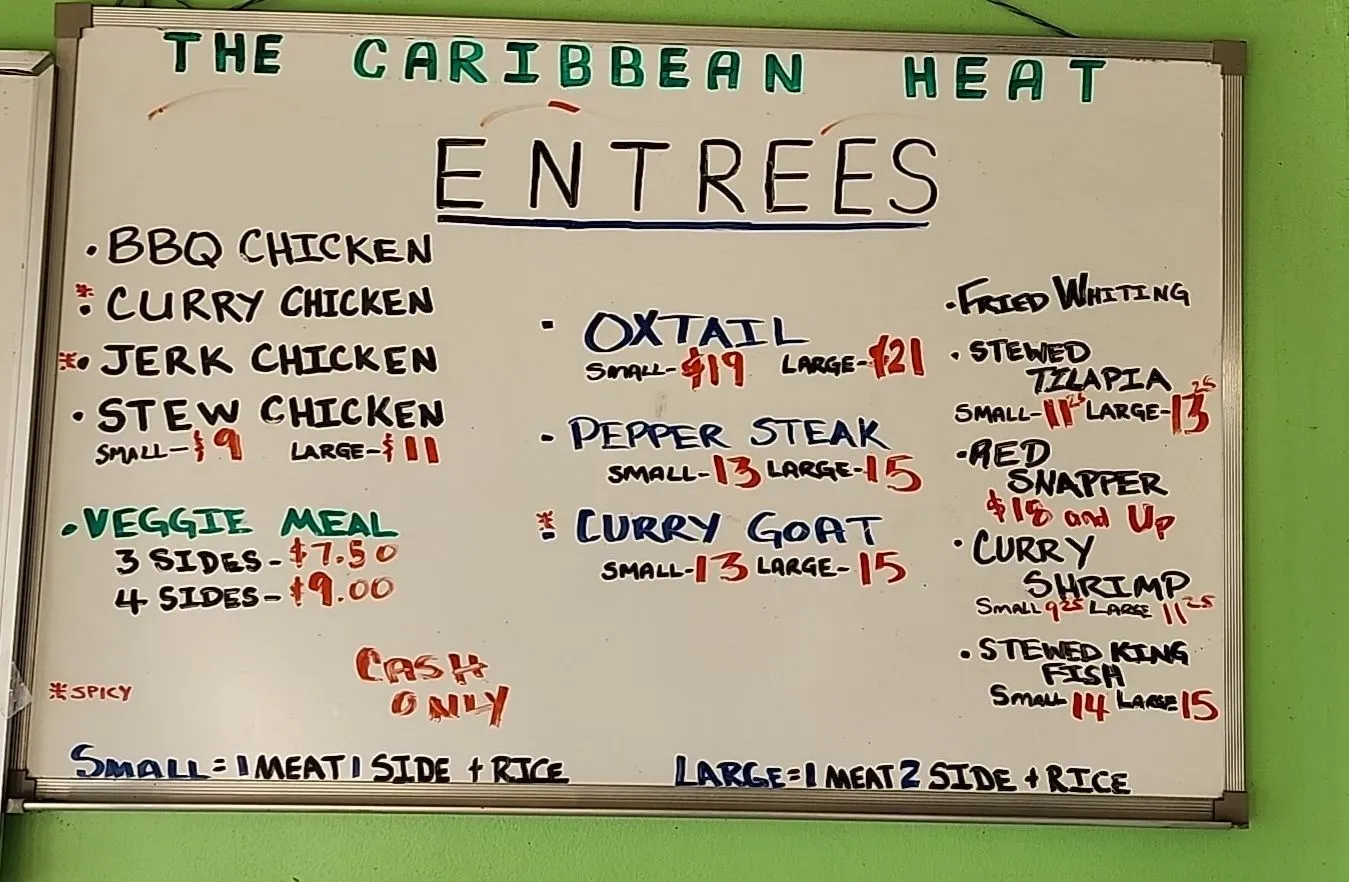 THE CARIBBEAN HEAT
ENTREES
• BBQ CHICKEN
* • CURRY CHICKEN
* • JERK CHICKEN
• STEW CHICKEN
SMALL-$9 LARGE-$11
• VEGGIE MEAL
3 SIDES-$7.50
4 SIDES-$9.00
CASH
ONLY
*SPICY
- OXTAIL
SMALL-$19 LARGE-$21
- PEPPER STEAK
SMALL-13 LARGE-15
* - CURRY GOAT
SMALL-13 LARGE-15
• FRIED WHITING
• STEWED
TILAPIA
SMALL-11.25 LARGE-13.25
• RED
SNAPPER
$18 and Up
• CURRY
SHRIMP
SMALL 9.25 LARGE 11.25
• STEWED KING
FISH
SMALL 14 LARGE 15
SMALL=1 MEAT 1 SIDE + RICE
LARGE=1 MEAT 2 SIDE + RICE